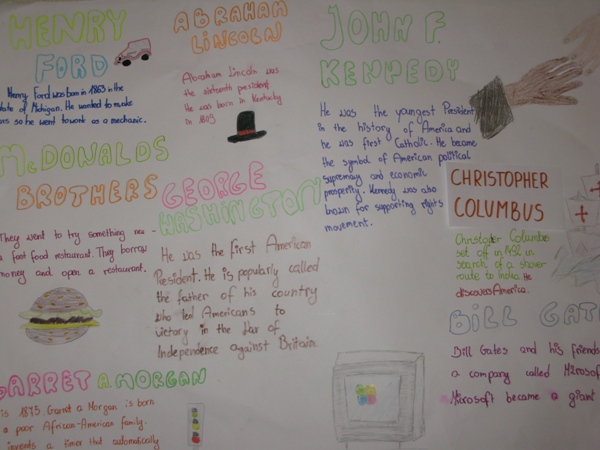 HENRY
FORD
Henry Ford was born in 1863 in the
state of Michigan. He wanted to make
cars so he went to work as a mechanic.
ABRAHAM
LINCOLN
Abraham Lincoln was
the sixteenth president
He was born in Kentucky
in 1809
JOHN F.
KENNEDY
He was the youngest President
in the history of America and
he was first Catholic. He became
the symbol of American political
supremacy and economic
prosperity. Kennedy was also
known for supporting rights
movement.
McDONALDS
BROTHERS
They want to try something new -
a fast food restaurant. They borrow
money and open a restaurant.
GEORGE
WASHINGTON
He was the first American
President. He is popularly called
the father of his country
who led Americans to
victory in the War of
Independence against Britain.
CHRISTOPHER
COLUMBUS
Christopher Columbus
set off in 1492 in
search of a shorter
route to India. He
discovers America.
BILL GAT
Bill Gates and his friends
a company called Microsof
Microsoft became a giant
GARRET A MORGAN
is 1875. Garret a Morgan is born
a poor African-American family.
invents a timer that automatically